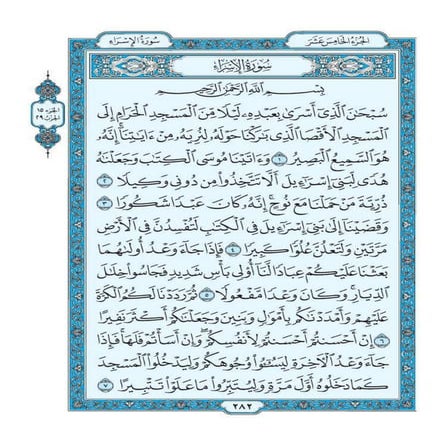 سُورَةُ الإِسْرَاءِ
الجُزْءُ الخَامِسَ عَشَرَ
الجزء ١٥
الحزب ٢٩
سُورَةُ الإِسْرَاءِ
بِسْمِ اللَّهِ الرَّحْمَٰنِ الرَّحِيمِ
سُبْحَٰنَ الَّذِي أَسْرَىٰ بِعَبْدِهِ لَيْلًا مِّنَ الْمَسْجِدِ الْحَرَامِ إِلَى
الْمَسْجِدِ الْأَقْصَا الَّذِي بَٰرَكْنَا حَوْلَهُ لِنُرِيَهُ مِنْ ءَايَٰتِنَا إِنَّهُ
هُوَ السَّمِيعُ الْبَصِيرُ ١ وَءَاتَيْنَا مُوسَى الْكِتَٰبَ وَجَعَلْنَٰهُ
هُدًى لِّبَنِي إِسْرَٰءِيلَ أَلَّا تَتَّخِذُوا مِن دُونِي وَكِيلًا ٢
ذُرِّيَّةَ مَنْ حَمَلْنَا مَعَ نُوحٍ إِنَّهُ كَانَ عَبْدًا شَكُورًا ٣
وَقَضَيْنَا إِلَىٰ بَنِي إِسْرَٰءِيلَ فِي الْكِتَٰبِ لَتُفْسِدُنَّ فِي الْأَرْضِ
مَرَّتَيْنِ وَلَتَعْلُنَّ عُلُوًّا كَبِيرًا ٤ فَإِذَا جَاءَ وَعْدُ أُولَىٰهُمَا
بَعَثْنَا عَلَيْكُمْ عِبَادًا لَّنَا أُولِي بَأْسٍ شَدِيدٍ فَجَاسُوا خِلَٰلَ
الدِّيَارِ وَكَانَ وَعْدًا مَّفْعُولًا ٥ ثُمَّ رَدَدْنَا لَكُمُ الْكَرَّةَ
عَلَيْهِمْ وَأَمْدَدْنَٰكُم بِأَمْوَٰلٍ وَبَنِينَ وَجَعَلْنَٰكُمْ أَكْثَرَ نَفِيرًا
٦ إِنْ أَحْسَنتُمْ أَحْسَنتُمْ لِأَنفُسِكُمْ وَإِنْ أَسَأْتُمْ فَلَهَا فَإِذَا
جَاءَ وَعْدُ الْءَاخِرَةِ لِيَسُءُوا وُجُوهَكُمْ وَلِيَدْخُلُوا الْمَسْجِدَ
كَمَا دَخَلُوهُ أَوَّلَ مَرَّةٍ وَلِيُتَبِّرُوا مَا عَلَوْا تَتْبِيرًا ٧
٢٨٢